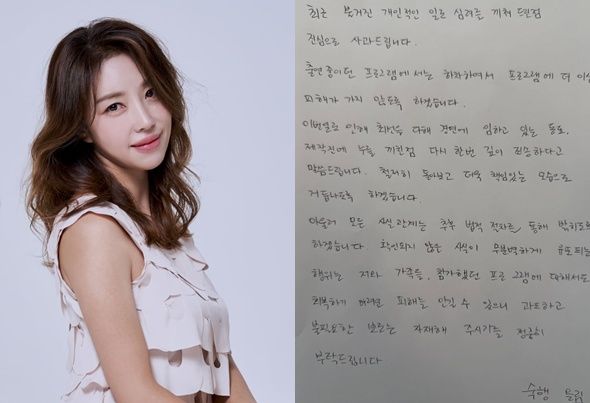 최근 불거진 개인적인 일로 심려를 끼쳐 드린점
진심으로 사과드립니다.
출연 중이던 프로그램에서는 하차하여서 프로그램에 더 이상
피해가 가지 않도록 하겠습니다.
이번일로 인해 최선을 다해 경연에 임하고 있는 동료,
제작진에 누를 끼친점 다시 한번 깊이 죄송하다고
말씀드립니다. 철저히 돌아보고 더욱 책임있는 모습으로
거듭나도록 하겠습니다.
아울러 모든 사실 관계는 추후 법적 절차를 통해 밝히도록
하겠습니다. 확인되지 않은 사실이 무분별하게 유포되는
행위는 저와 가족들, 참가했던 프로그램에 대해서도
회복하기 어려운 피해를 안길 수 있으니 과도하고
불필요한 보도는 자제해 주시기를 정중히
부탁드립니다
숙행 드림